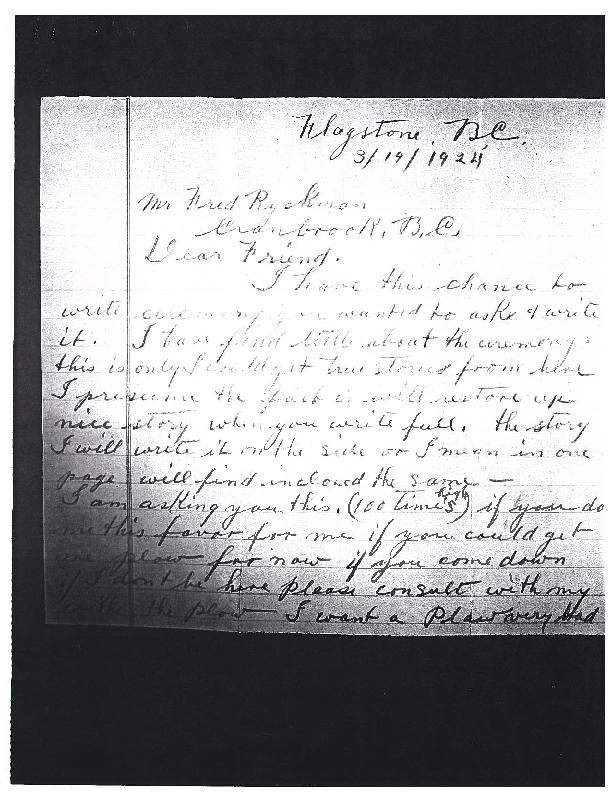 Flagstone, B.C.
3/19/1924
Mr Fred Ryckman
Cranbrook, B.C.
Dear Friend.
I have this chance to
write ceremony you wanted to aske & write
it. I have find little about the ceremony.
this is only I could get true stories from here
I presume the fact is will restore up
nice story when you write full. the story
I will write it on the side or I mean in one
page will find inclosed the same —
I am asking you this. (100 times high) if you do
me this favor for me if you could get
me plow for now if you come down
if I dont be here please consult with my
the plow I want a Plow very bad